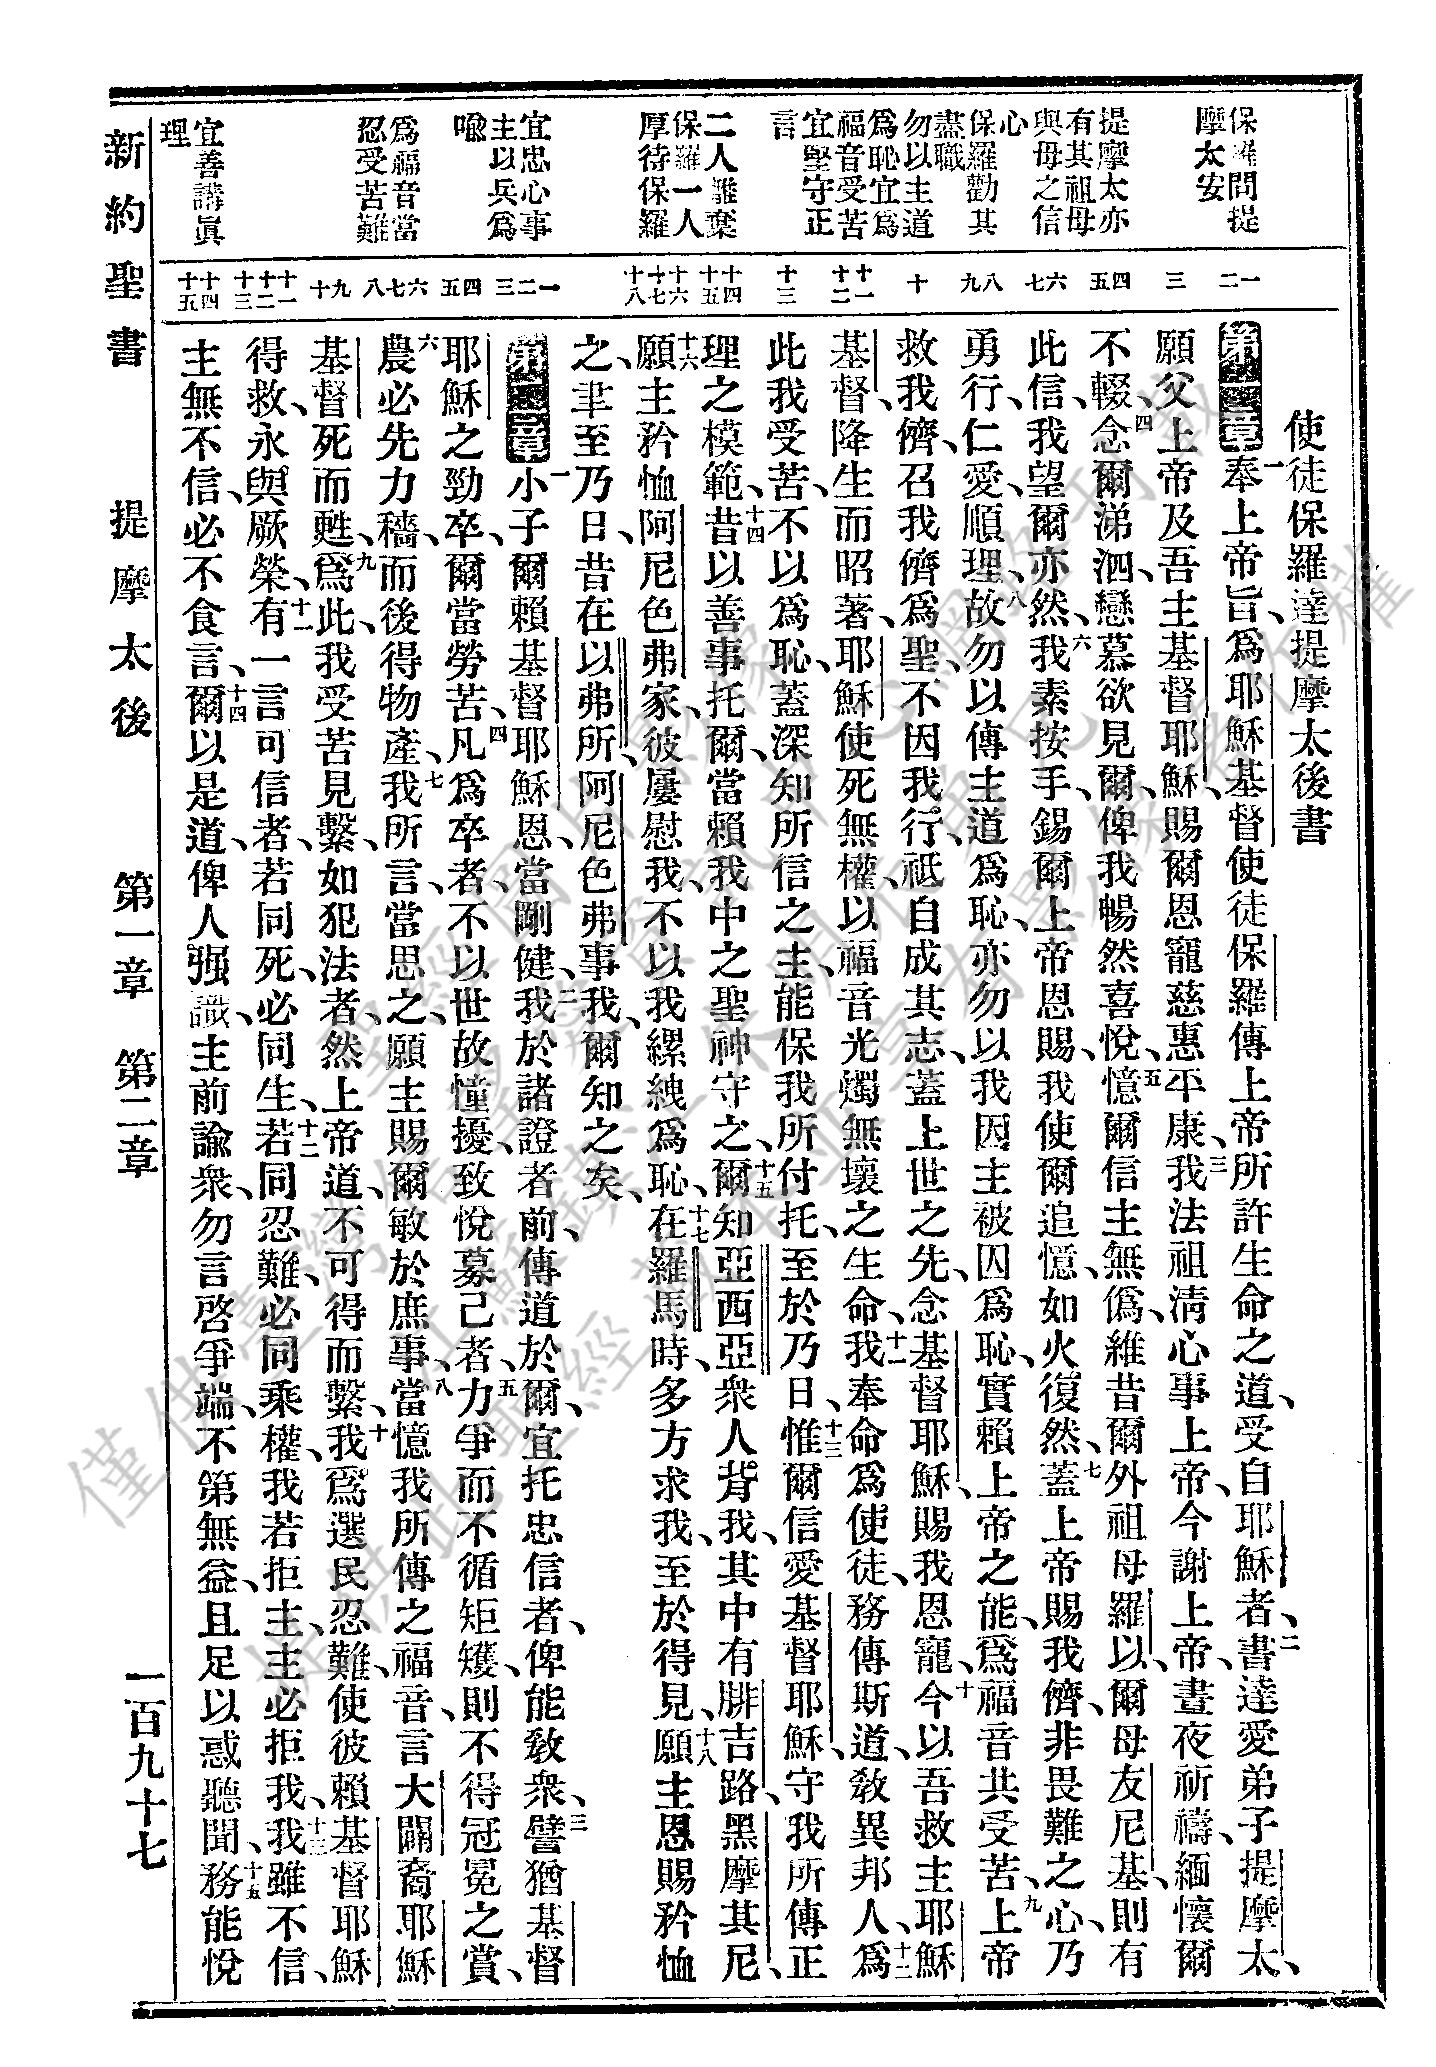 使徒保羅達提摩太後書
第一章一奉上帝旨、爲耶穌基督使徒保羅傳上帝所許生命之道、受自耶穌者、二書達愛弟子提摩太、
願父上帝及吾主基督耶穌、賜爾恩寵慈惠平康、三我法祖淸心事上帝、今謝上帝、晝夜祈禱、緬懷爾
不輟、四念爾涕泗、戀慕欲見爾、俾我暢然喜悅、五憶爾信主無僞、維昔爾外祖母羅以、爾母友尼基、則有
此信、我望爾亦然、六我素按手、錫爾上帝恩賜、我使爾追憶、如火復然、七蓋上帝賜我儕、非畏難之心、乃
勇行、仁愛、順理、八故勿以傳主道爲恥、亦勿以我因主被囚爲恥、實賴上帝之能、爲福音共受苦、九上帝
救我儕、召我儕爲聖、不因我行、祇自成其志、蓋上世之先、念基督耶穌、賜我恩寵、十今以吾救主耶穌
基督、降生而昭著、耶穌使死無權、以福音光燭無壞之生命、十一我奉命爲使徒、務傳斯道、敎異邦人、十二爲
此我受苦、不以爲恥、蓋深知所信之主、能保我所付托、至於乃日、十三惟爾信愛基督耶穌、守我所傳正
理之模範、十四昔以善事托爾、當賴我中之聖神守之、十五爾知亞西亞衆人背我、其中有腓吉路、黑摩其尼、
十六願主矜恤阿尼色弗家、彼屢慰我、不以我縲絏爲恥、十七在羅馬時、多方求我、至於得見、十八願主恩賜矜恤
之、聿至乃日、昔在以弗所、阿尼色弗事我、爾知之矣、
第二章一小子爾賴基督耶穌恩、當剛健、二我於諸證者前、傳道於爾、宜托忠信者、俾能敎衆、三譬猶基督
耶穌之勁卒、爾當勞苦、四凡爲卒者、不以世故憧擾、致悅募己者、五力爭而不循矩矱、則不得冠冕之賞、
六農必先力穡、而後得物產、七我所言、當思之、願主賜爾敏於庶事、八當憶我所傳之福音、言大闢裔耶穌
基督死而甦、九爲此、我受苦見繫、如犯法者、然上帝道、不可得而繫、十我爲選民忍難、使彼賴基督耶穌
得救、永與厥榮、十一有一言可信者、若同死、必同生、十二若同忍難、必同乘權、我若拒主、主必拒我、十三我雖不信、
主無不信、必不食言、十四爾以是道、俾人强識、主前諭衆、勿言啓爭端、不第無益、且足以惑聽聞、十五務能悅
一二
三
四五
六七
八九
十
十一十二
十三
十四十五
十六十七十八
一二三
四五
六七八
九十
十一十二十三
十四十五
保羅問提摩太安
提摩太亦有其祖母與母之信心
保羅勸其盡職
勿以主道爲恥宜爲福音受苦
宜堅守正言
二人離棄保羅一人厚待保羅
宜忠心事主以兵爲喩
爲福音當忍受苦難
宜善講眞理
新約聖書　提摩太後　第一章　第二章　一百九十七
僅供臺灣信望愛信望愛